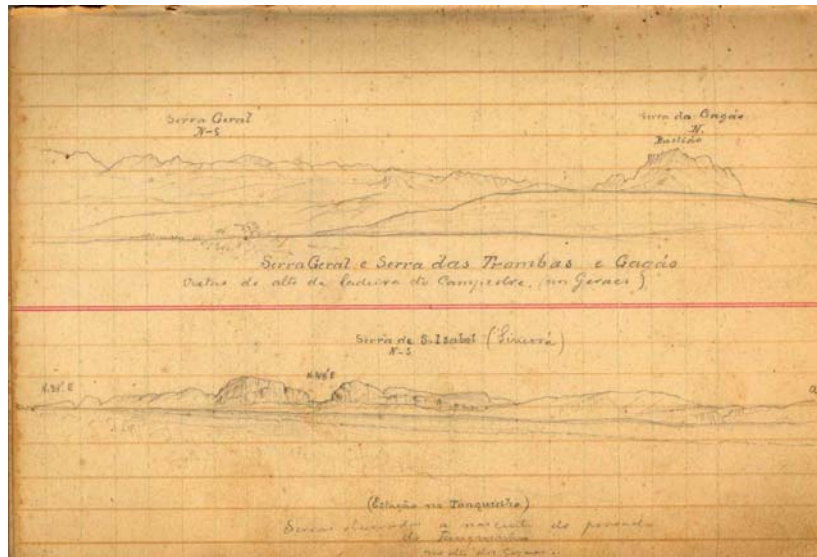 Serra Geral
N-S
Serra da Gagáo
N.
Bastião
Serra Geral e Serra das Trombas e Gagáo
Vistas do alto da ladeira do Campestre, (nos Geraes)
Serra de S. Isabel (Sincorá)
N-S
(Estação no Tanquinho)
Serras observadas a nascente do povoado
do Tanquinho